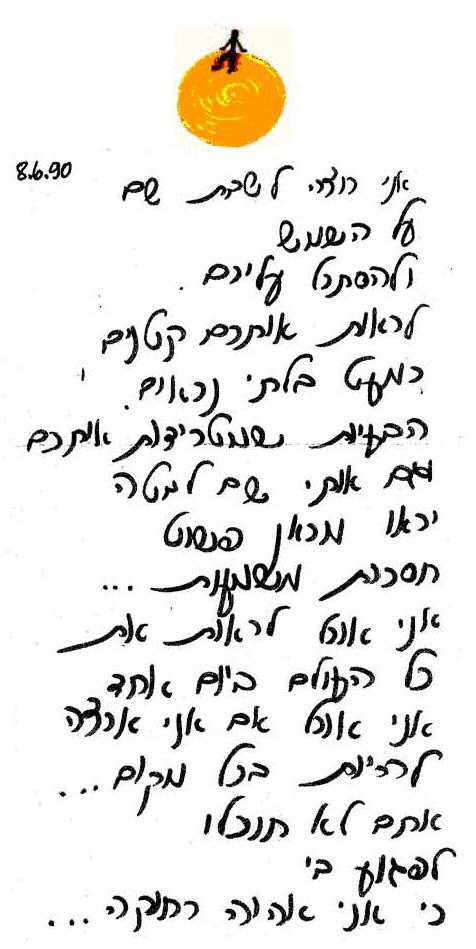 8.6.90
אני רוצה לשבת שם
על השמש
ולהסתכל עליכם.
לראות אתכם קטנים
כמעט בלתי נראים.
הבעיות שמטרידות אתכם
וגם אותי שם למטה
יראו מכאן פשוט
חסרות משמעות...
אני אוכל לראות את
כל העולם ביום אחד
אני אוכל אם אני ארצה
להיות בכל מקום...
אתם לא תוכלו
לפגוע בי
כי אני אהיה רחוקה...